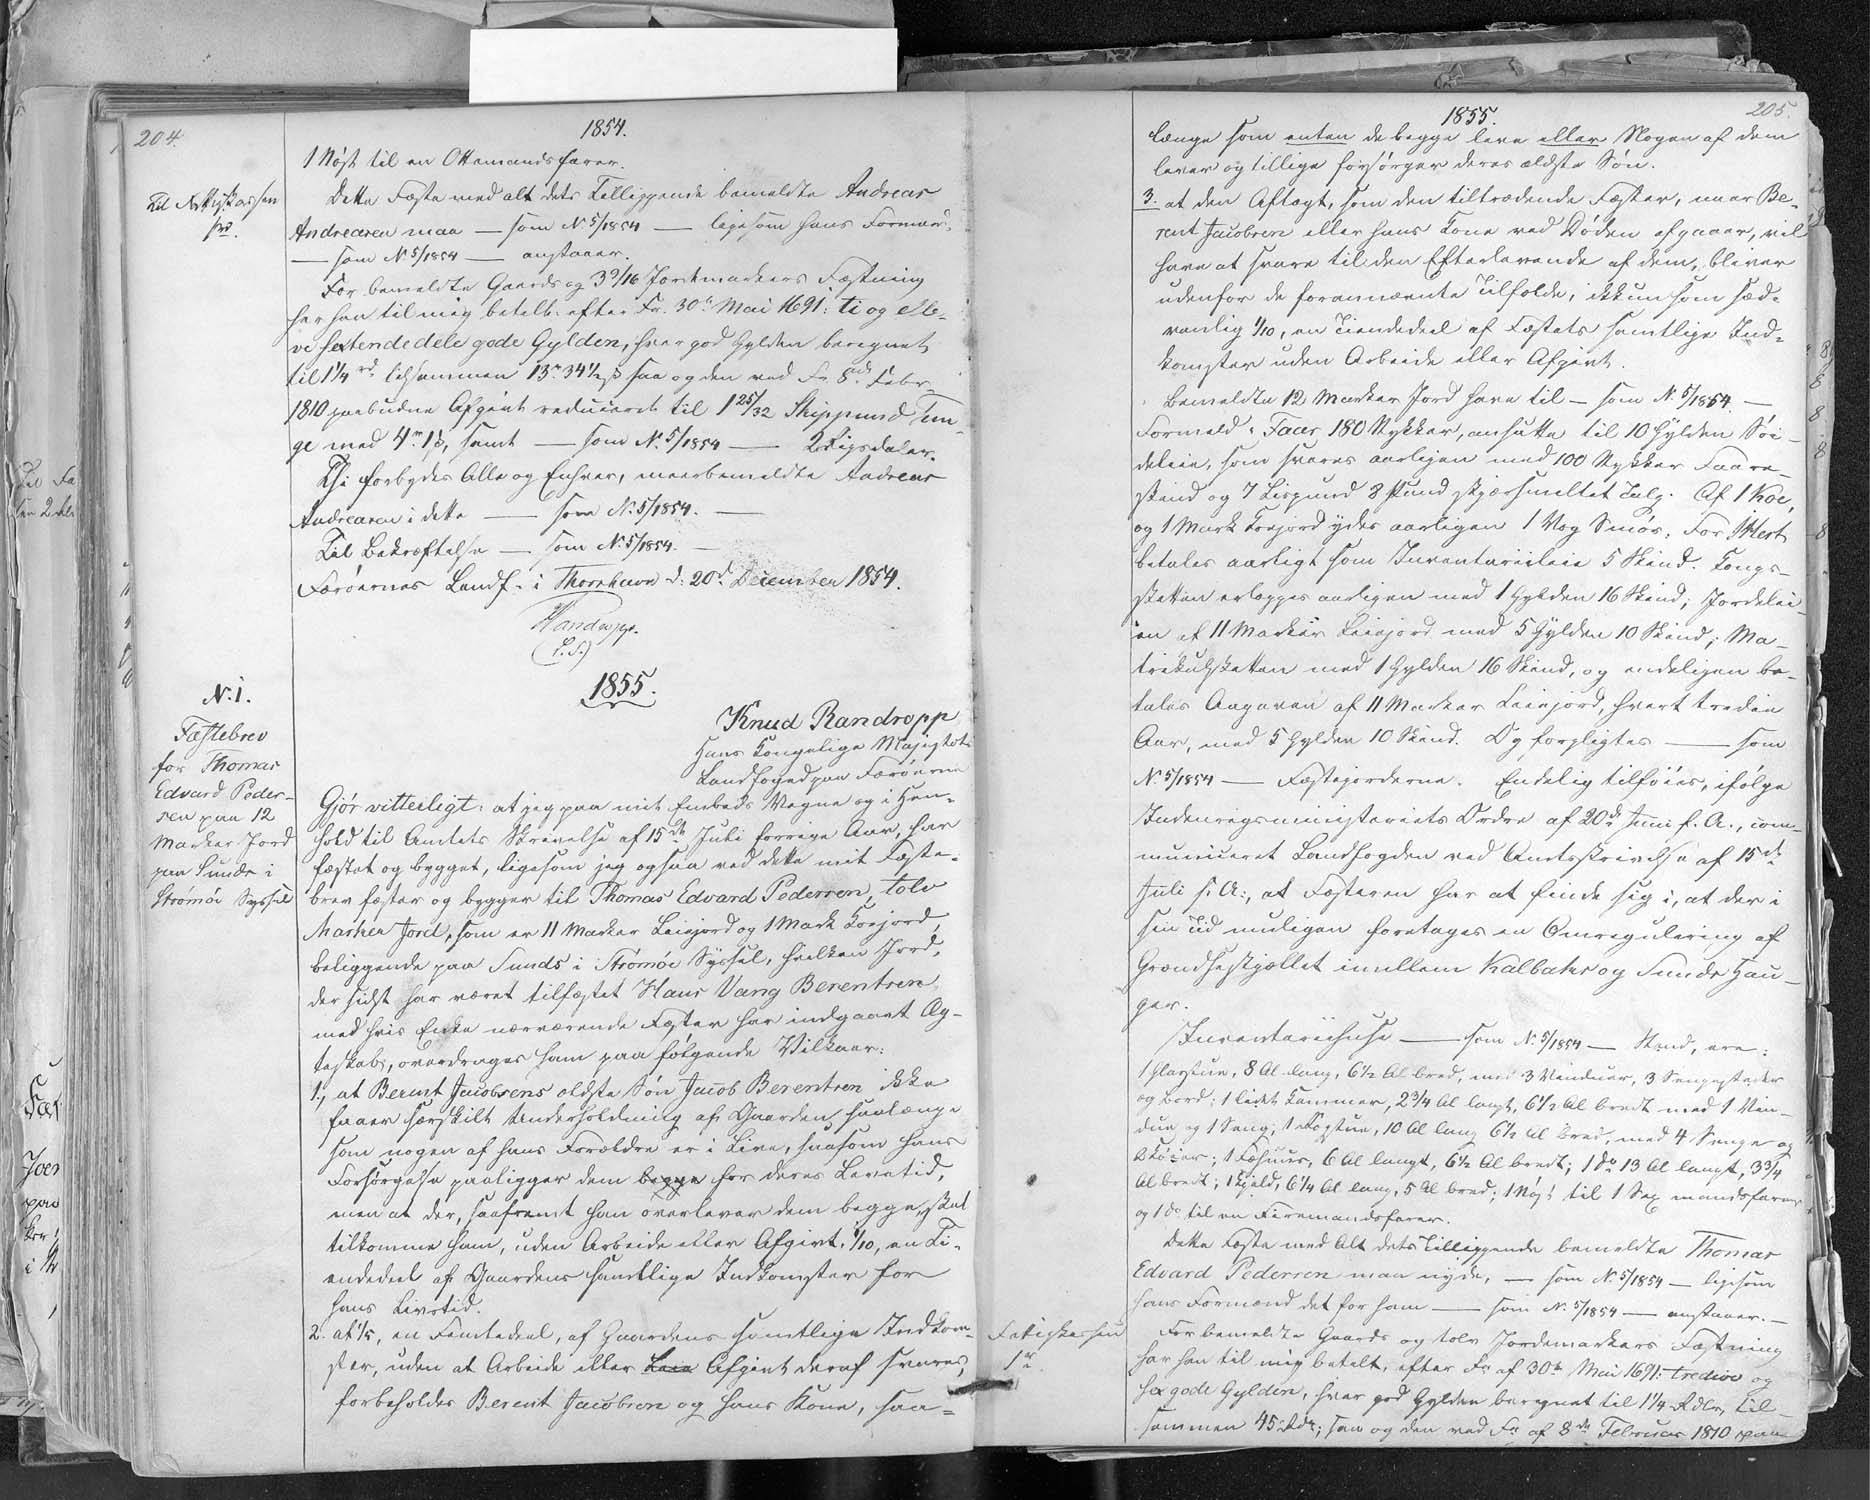 204.
1854.
1 Nøst til en Ottemandsfarer.
Dette Fæste med alt dets Tilliggende bemeldte Andreas
Andreasen maa — som No 5/1854 — ligesom hans Formænd
— som No 5/1854 — anstaaer.
For bemeldte Gaards og 3 9/16 Jordemarkers Fæstning
har han til mig betalt efter Fr. 30te Mai 1691: ti og elle-
ve sextendedele gode Gylden, hver god Gylden beregnet
til 1 1/4 rd. tilsammen 13rd 34 1/2 ß saa og den ved Fr. 8de Febr.
1810 paabudne Afgivt reduceret til 1 25/32 Skippund Tien-
ge med 4m 1ß, samt — som No 5/1854 — 2 Rigsdaler.
Thi forbydes Alle og Enhver, meerbemeldte Andreas
Andreasen i dette — som No 5/1854. —
Til Bekræftelse — som No 5/1854. —
Færøernes Landf. i Thorshavn d. 20de December 1854.
Randropp.
(L. S.)
1855.
No. 1.
Fæstebrev
for Thomas
Edvard Peder-
sen paa 12
Marker Jord
paa Sunde i
Strømøe Syssel
Knud Randropp
Hans Kongelige Majestæts
Landfoged paa Færøerne
Gjør vitterligt: at jeg paa mit Embeds Vegne og i Hen-
hold til Amtets Skrivelse af 15de Juli forrige Aar, har
fæstet og bygget, ligesom jeg ogsaa ved dette mit Fæste-
brev fæster og bygger til Thomas Edvard Pedersen, tolv
Marker Jord, som er 11 Marker Leiejord og 1 Mark Koejord,
beliggende paa Sunds i Strømøe Syssel, hvilken Jord,
der sidst har været tilfæstet Hans Vang Berentsen,
med hvis Enke nærværende Fæster har indgaaet Æg-
teskab, overdrages ham paa følgende Vilkaar:
1., at Berent Jacobsens ældste Søn Jacob Berentsen ikke
faaer særskilt Underholdning af Gaarden, saalænge
som nogen af hans Forældre er i Live, saasom hans
Forsørgelse paaligger dem begge for deres Levetid,
men at der, saafremt han overlever dem begge, skal
tilkomme ham, uden Arbeide eller Afgivt, 1/10, en Ti-
endedeel af Gaardens samtlige Indkomster for
hans Livstid.
2. at 1/5, en Femtedeel, af Gaardens samtlige Indkom-
ster, uden at Arbeide eller Leie Afgivt deraf svares,
forbeholdes Berent Jacobsen og hans Kone, saa-
205.
1855.
længe som enten de begge leve eller Nogen af dem
lever og tillige forsørger deres ældste Søn.
3. at den Aftægt, som den tiltrædende Fæster, naar Be-
rent Jacobsen eller hans Kone ved Døden afgaaer, vil
have at svare til den Efterlevende af dem, bliver
udenfor de forannævnte Tilfælde, ikkun som sæd-
vanlig 1/10, en Tiendedeel af Fæstets samtlige Ind-
komster uden Arbeide eller Afgivt.
Bemeldte 12 Marker Jord have til — som No 5/1854. —
Formeld: Faar, 180 Stykker, ansatte til 10 Gylden Søi-
deleie, som svares aarligen med 100 Stykker Faare-
skind og 7 Lispund 8 Pund skjærsmeltet Talg. Af 1 Koe,
og 1 Mark Koejord ydes aarligen 1 Vog Smør. For 1 Hest
betales aarligt som Inventariileie 5 Skind. Kongs-
skatten erlægges aarligen med 1 Gylden 16 Skind; Jordlei-
en af 11 Marker Leiejord med 5 Gylden 10 Skind; Ma-
trikulskatten med 1 Gylden 16 Skind, og endeligen be-
tales Angaven af 11 Marker Leiejord, hvert tredie
Aar, med 5 Gylden 10 Skind. Og forpligtes — som
No 5/1854 — Fæstejorderne. Endelig tilføies, ifølge
Indenrigsministeriets Ordre af 20de Juni f. A., com-
municeret Landfogden ved Amtsskrivelse af 15de
Juli s. A:, at Fæsteren har at finde sig i, at der i
sin Tid muligen foretages en Omregulering af
Grændseskjellet imellem Kalbaks og Sunds Hau-
ger.
Inventariihuse — som No. 5/1854 — Stand, ere:
1 Glasstue, 8 Al. lang, 6 1/2 Al bred, med 3 Vinduer, 3 Sengesteder
og bord; 1 lidet Kammer, 2 3/4 Al langt, 6 1/2 Al bredt med 1 Vin-
due og 1 Seng; 1 Røgstue, 10 Al lang 6 1/2 Al bred, med 4 Senge og
1 Fæhuus, 6 Al langt, 6 1/2 Al bredt; 1 do 13 Al langt, 3 3/4
Al bredt; 1 Hjeld, 6 1/4 Al lang, 5 Al bred; 1 Nøst til 1 Sex mandsfarer
og 1 do til en Firemandsfarer.
Dette Fæste med Alt dets Tilliggende bemeldte Thomas
Edvard Pedersen maa nyde, — som No. 5/1854 — ligesom
hans Formænd det for ham — som No. 5/1854 — anstaaer. —
For bemeldte Gaards og tolv Jordemarkers Fæstning
har han til mig betalt, efter Fr af 30te Mai 1691: tredive og
sex gode Gylden, hver god Gylden beregnet til 1 1/4 Rdlr, til-
sammen 45 Rdr; saa og den ved Fr af 8de Februar 1810 paa-